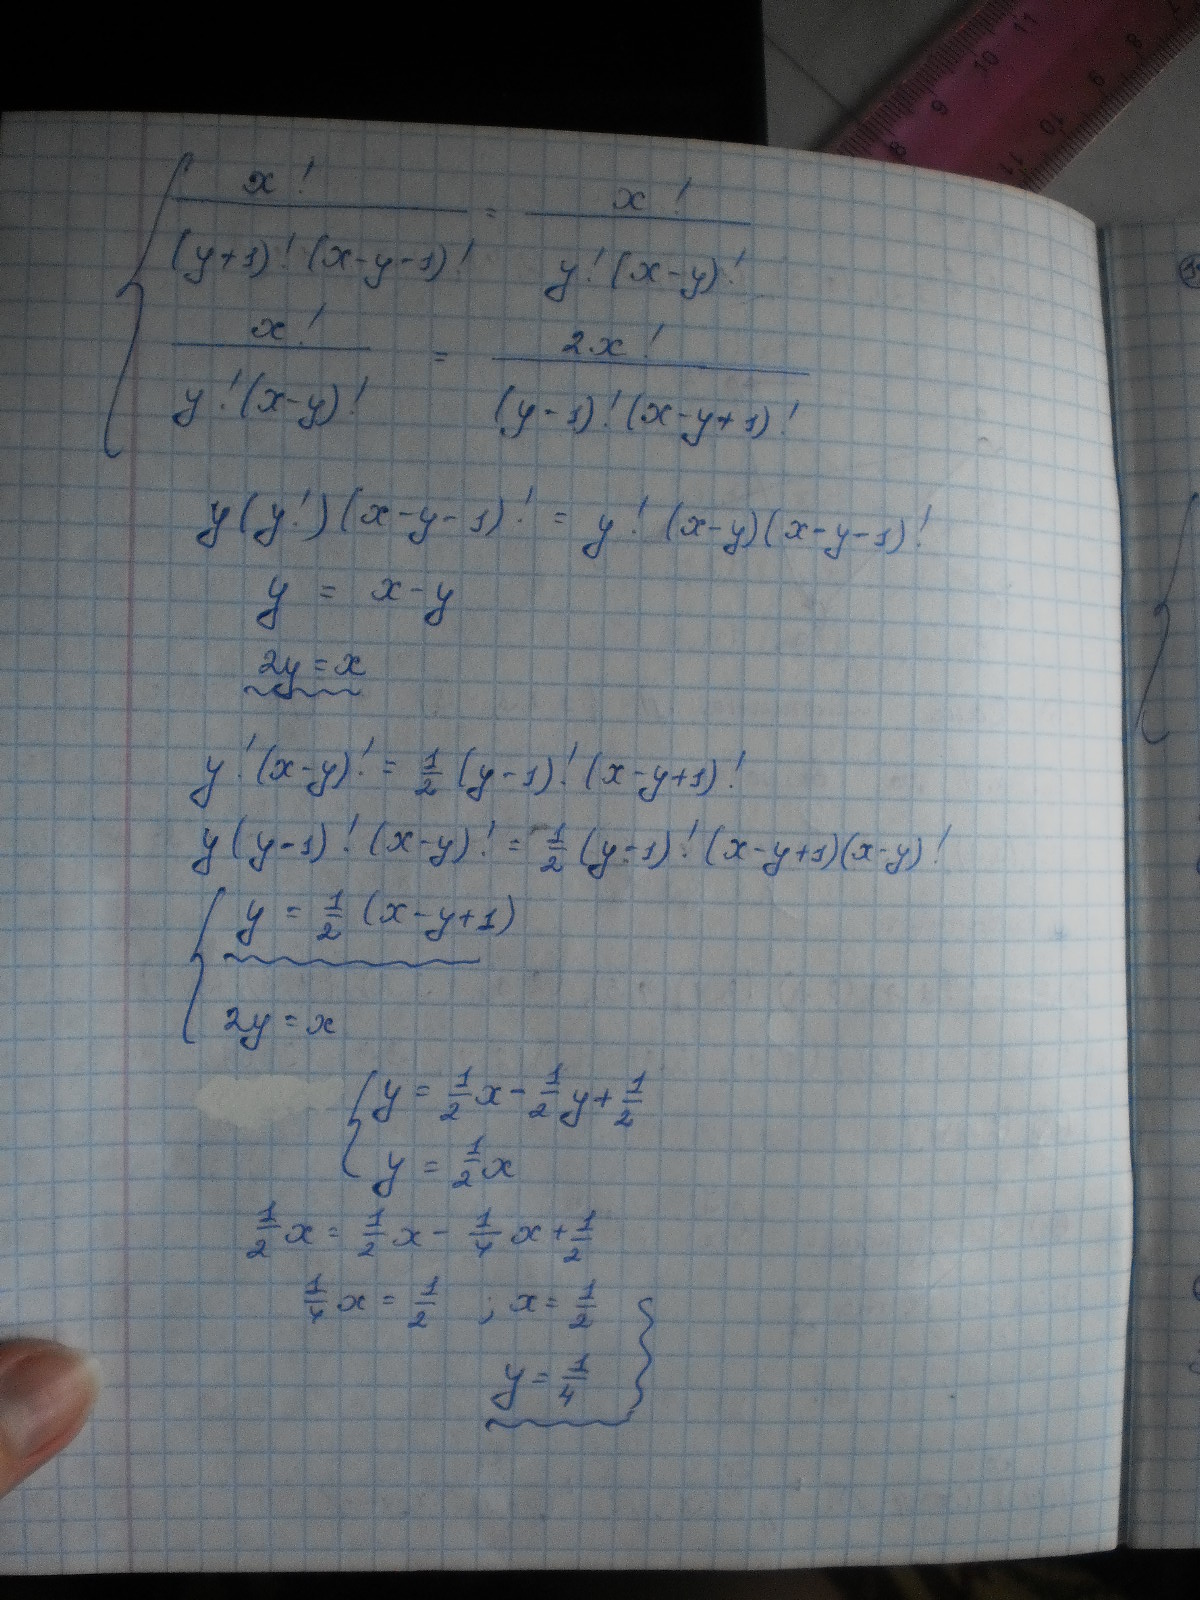 x! / ((y+1)! (x-y-1)!) = x! / (y! (x-y)!)
x! / (y! (x-y)!) = 2x! / ((y-1)! (x-y+1)!)
y(y!)(x-y-1)! = y! (x-y)(x-y-1)!
y = x-y
2y = x
y! (x-y)! = 1/2 (y-1)! (x-y+1)!
y(y-1)! (x-y)! = 1/2 (y-1)! (x-y+1)(x-y)!
y = 1/2 (x-y+1)
2y = x
y = 1/2 x - 1/2 y + 1/2
y = 1/2 x
1/2 x = 1/2 x - 1/4 x + 1/2
1/4 x = 1/2 ; x = 1/2
y = 1/4
11
10
9
8
8
9
10
11